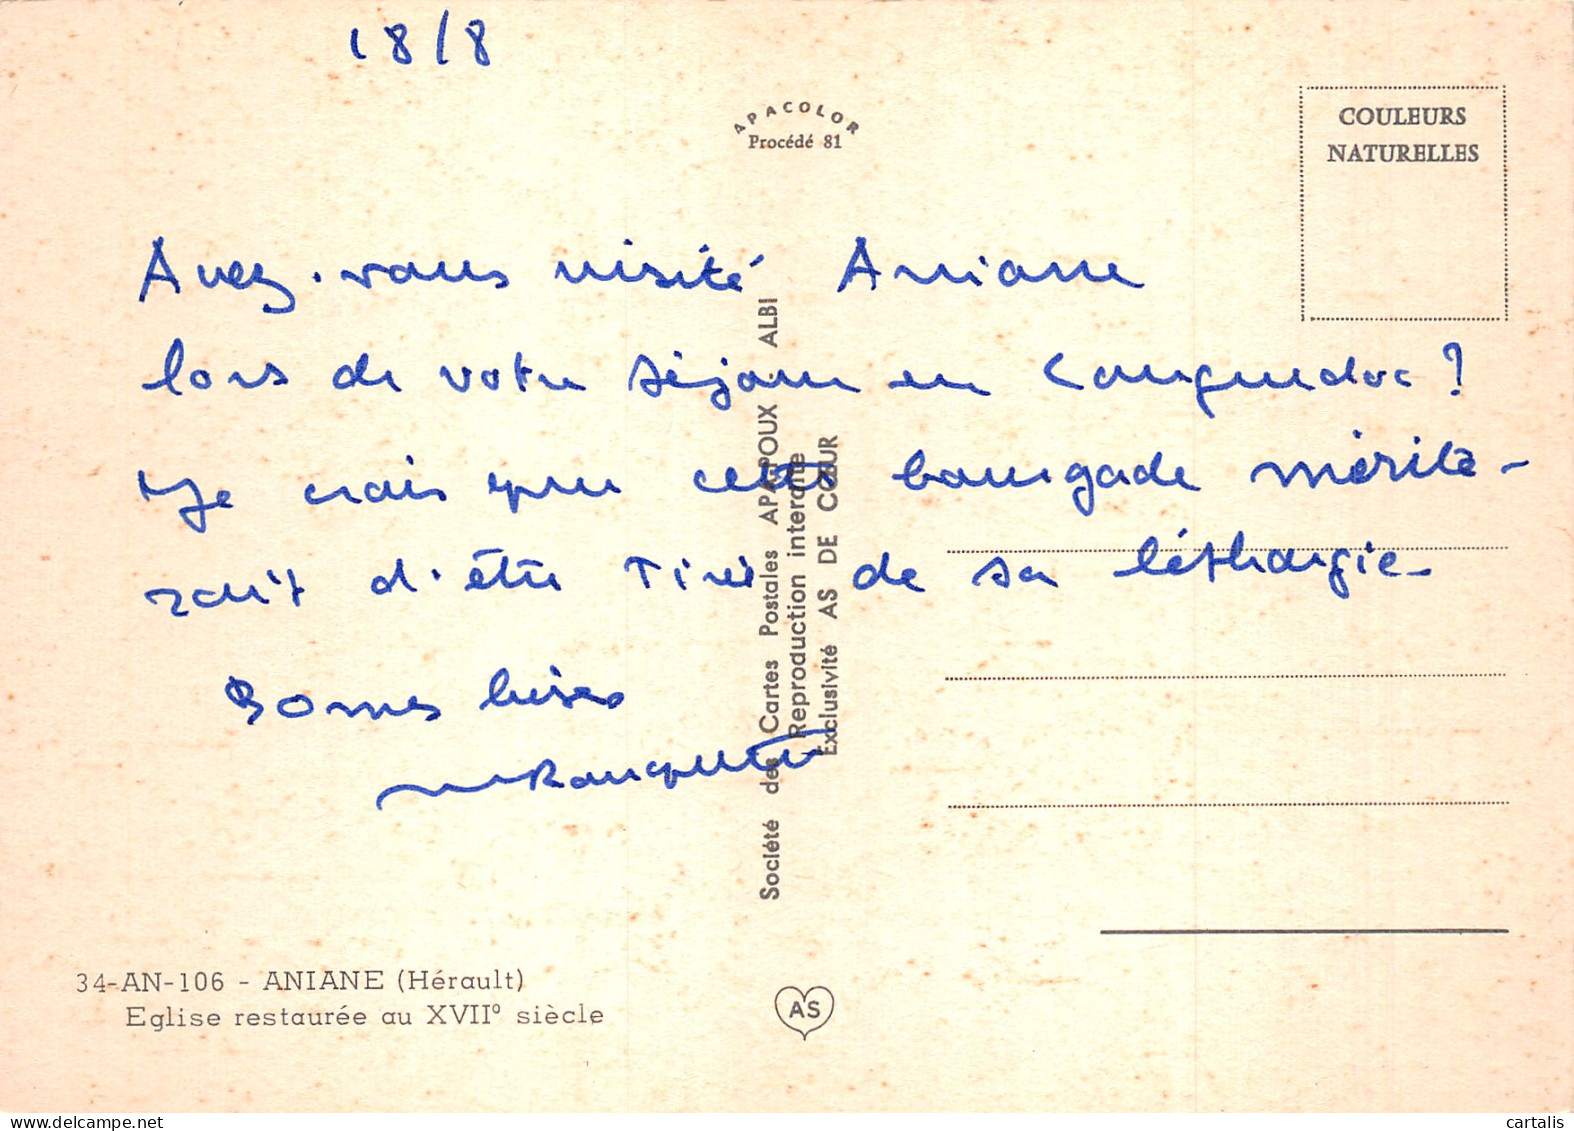 18/8
APACOLOR
Procédé 81
COULEURS
NATURELLES
Avez-vous visité Aniane
lors de votre séjour en Languedoc ?
Je crais que cette bourgade mérite-
rait d'être tirée de sa léthargie.
Bonnes bises
Société des Cartes Postales APA-POUX - ALBI
Reproduction interdite
Exclusivité AS DE CŒUR
34-AN-106 - ANIANE (Hérault)
Eglise restaurée au XVIIº siècle
AS
www.delcampe.net
cartalis